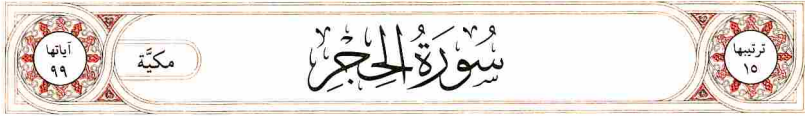 ترتيبها
١٥
سُورَةُ الحِجْرِ
مكيَّة
آياتها
٩٩